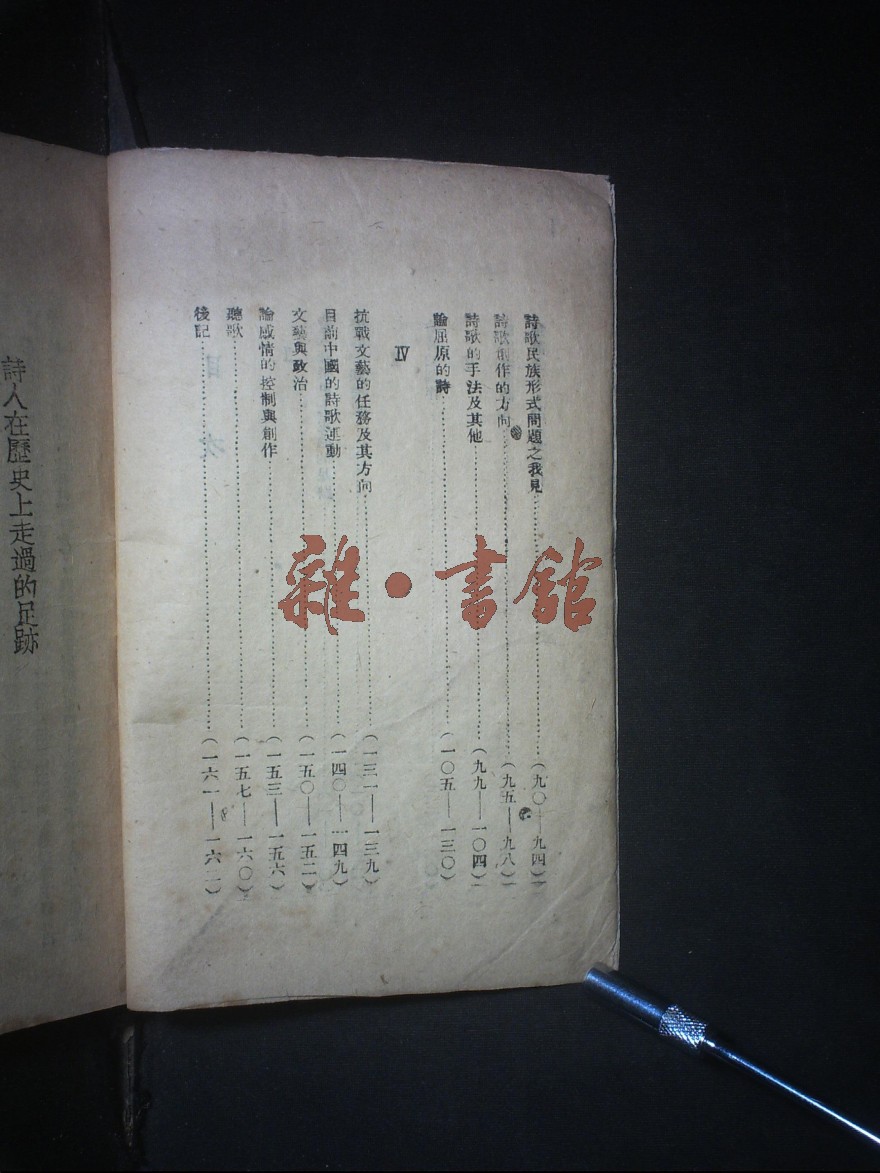 詩歌民族形式問題之我見……(九〇——九四)
詩歌創作的方向……(九五——九八)
詩歌的手法及其他……(九九——一〇四)
論屈原的詩……(一〇五——一三〇)
IV
抗戰文藝的任務及其方向……(一三一——一三九)
目前中國的詩歌運動……(一四〇——一四九)
文藝與政治……(一五〇——一五二)
論感情的控制與創作……(一五三——一五六)
聽歌……(一五七——一六〇)
後記……(一六一——一六二)
詩人在歷史上走過的足跡
雜·書館